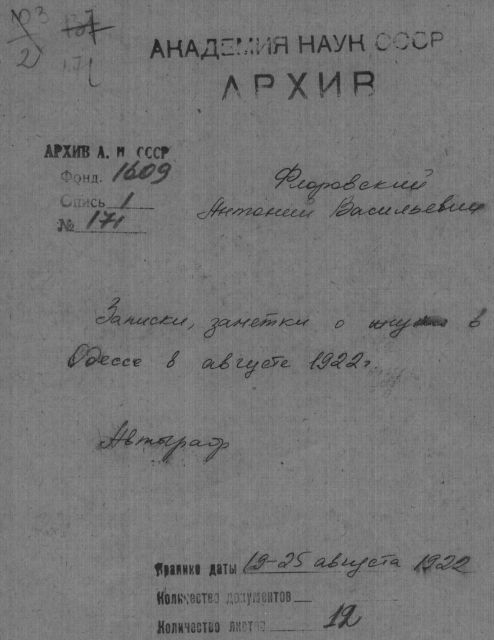 137
2
АКАДЕМИЯ НАУК СССР
АРХИВ
АРХИВ А. Н. СССР
Фонд. 1609
Опись 1
№ 171
Флоровский
Антоний Васильевич
Записки, заметки о в
Одессе в августе 1922 г.
Автограф
Крайние даты 19-25 августа 1922
Количество документов
Количество листов 12